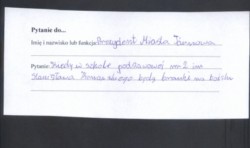 Pytanie do...
Imię i nazwisko lub funkcja Prezydent Miasta
Pytanie Kiedy w szkole podstawowej nr 2 im
Stanisława będą bramki na boisku